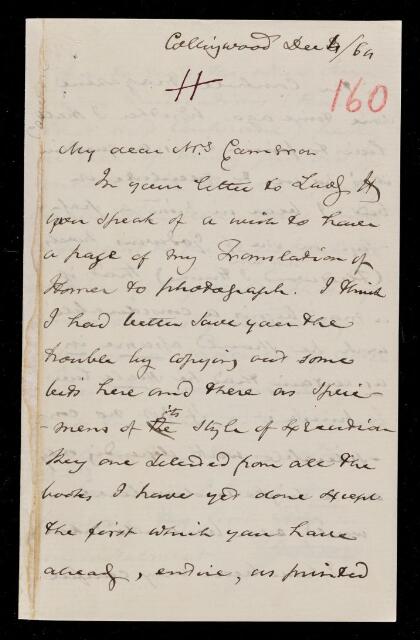 Collingwood Dec 4/64
H
160
My dear Mrs Cameron
In your letter to Lady H
you speak of a wish to have
a page of my Translation of
Homer to photograph. I think
I had better save you the
trouble by copying out some
bits here and there as speci
-mens of the its style of execution
They are selected from all the
books I have yet done except
the first which you have
already, entire, as printed